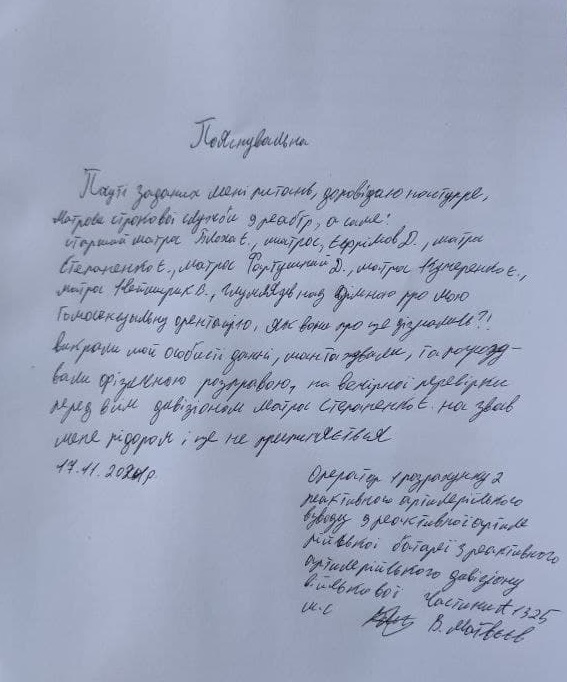 Пояснувальна
По суті заданих мені питань, доповідаю наступне,
матроси строкової служби 9 реабтр, а саме:
старший матрос Блоха Є., матрос, Єфрімов Д., матрос
Степаненко Є., матрос Фартушний Д., матрос Кучеренко Є.,
матрос Нейширик В., глумляться над мною про мою
гомосексуальну орентацію, як вони про це дізнались?!
викрали мої особисті данні, шантажували, та погрожу-
вали фізичною розправою, на вечірної перевірки
перед всим дивізіоном матрос Степаненко Є. назвав
мене підором і це не припиняється
17.11.2021р.
Оператор 1 розрахунку 2
реактивного артилерійського
взводу 9 реактивної артиле
рійської батареї 3 реактивного
артилерійського дивізіону
військової частини А1325
м.с В. Матвєєв